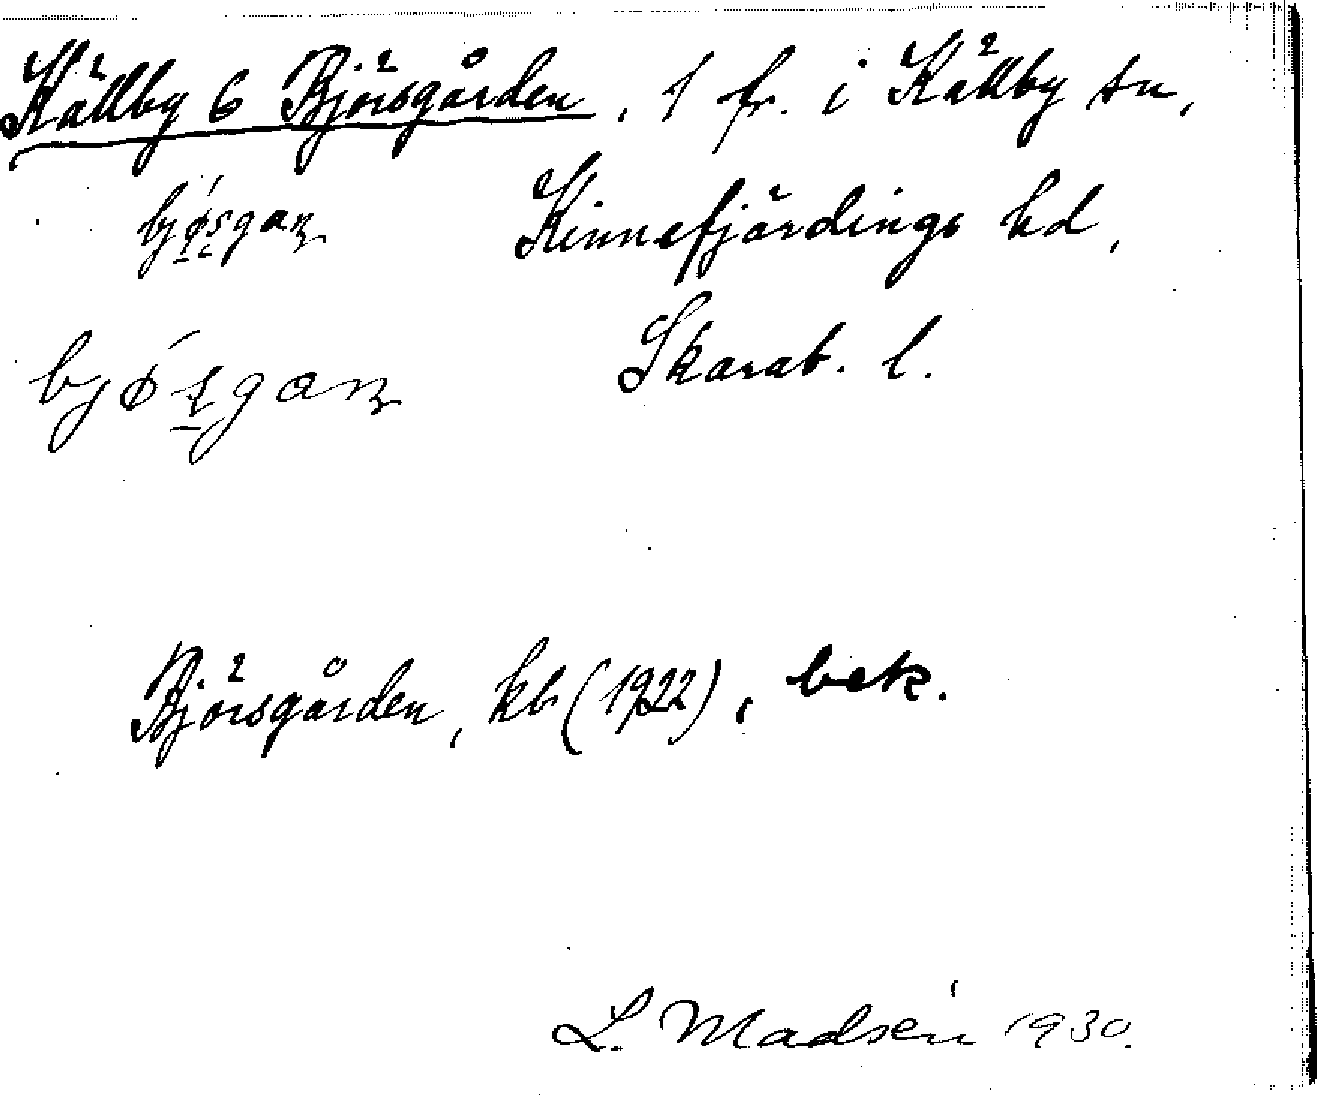 Källby 6 Björsgården, 1 fr. i Källby sn,
Kinnefjärdings hd,
Skarab. l.
Björsgården, kb (1922), bek.
L. Madsén 1930.